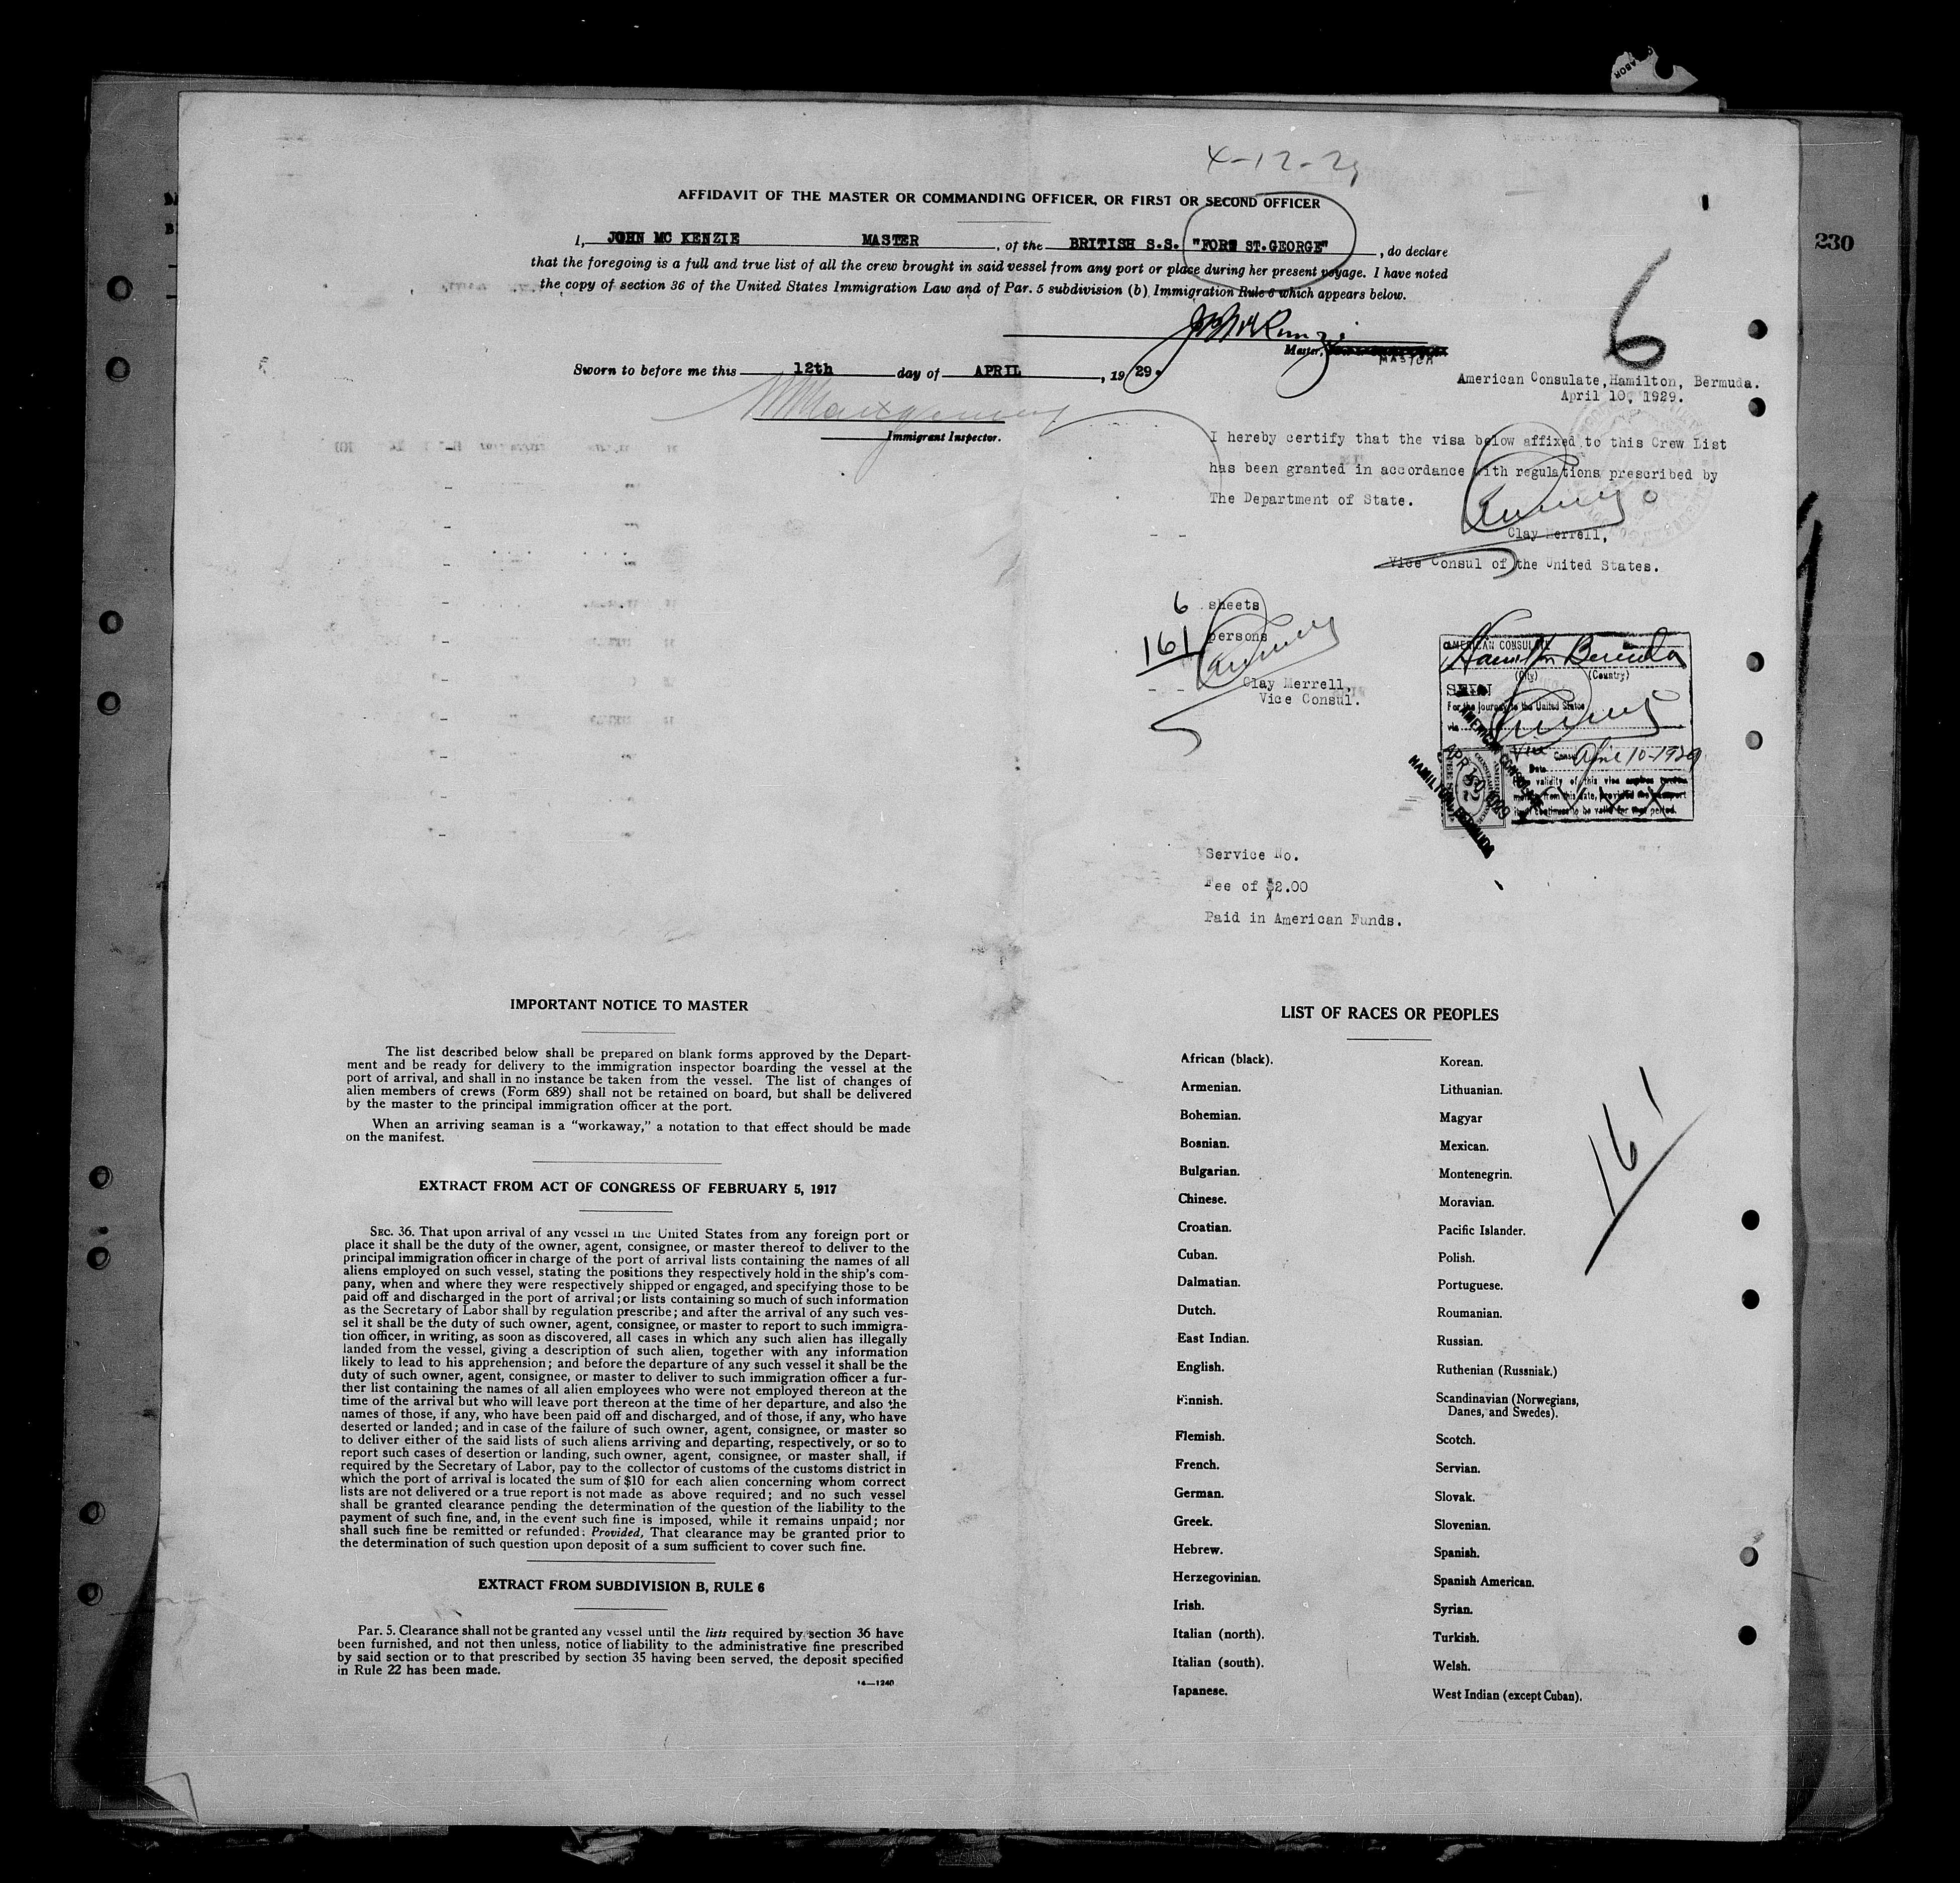 LABOR
4-12-29
AFFIDAVIT OF THE MASTER OR COMMANDING OFFICER, OR FIRST OR SECOND OFFICER
230
I, JOHN MC KENZIE MASTER, of the BRITISH S.S. "FORT ST.GEORGE", do declare
that the foregoing is a full and true list of all the crew brought in said vessel from any port or place during her present voyage. I have noted
the copy of section 36 of the United States Immigration Law and of Par. 5 subdivision (b) Immigration Rule 6 which appears below.
6
McKenzie
Master,
MASTER
Sworn to before me this 12th day of APRIL, 1929.
Immigrant Inspector.
American Consulate, Hamilton, Bermuda.
April 10, 1929.
I hereby certify that the visa below affixed to this Crew List
has been granted in accordance with regulations prescribed by
The Department of State.
Clay Merrell,
Vice Consul of the United States.
6 sheets
161 persons
Clay Merrell,
Vice Consul.
AMERICAN CONSULATE
Hamilton Bermuda
(City) (Country)
SEEN
For the journey to the United States
via
Vice Consul
April 10-1929
Date
validity of this visa
from this date, provided the passport
continues to be valid for that period.
AMERICAN CONSULATE
APR 10 1929
HAMILTON, BERMUDA
Service No.
Fee of $2.00
Paid in American Funds.
IMPORTANT NOTICE TO MASTER
The list described below shall be prepared on blank forms approved by the Depart-
ment and be ready for delivery to the immigration inspector boarding the vessel at the
port of arrival, and shall in no instance be taken from the vessel. The list of changes of
alien members of crews (Form 689) shall not be retained on board, but shall be delivered
by the master to the principal immigration officer at the port.
When an arriving seaman is a "workaway," a notation to that effect should be made
on the manifest.
EXTRACT FROM ACT OF CONGRESS OF FEBRUARY 5, 1917
SEC. 36. That upon arrival of any vessel in the United States from any foreign port or
place it shall be the duty of the owner, agent, consignee, or master thereof to deliver to the
principal immigration officer in charge of the port of arrival lists containing the names of all
aliens employed on such vessel, stating the positions they respectively hold in the ship's com-
pany, when and where they were respectively shipped or engaged, and specifying those to be
paid off and discharged in the port of arrival; or lists containing so much of such information
as the Secretary of Labor shall by regulation prescribe; and after the arrival of any such ves-
sel it shall be the duty of such owner, agent, consignee, or master to report to such immigra-
tion officer, in writing, as soon as discovered, all cases in which any such alien has illegally
landed from the vessel, giving a description of such alien, together with any information
likely to lead to his apprehension; and before the departure of any such vessel it shall be the
duty of such owner, agent, consignee, or master to deliver to such immigration officer a fur-
ther list containing the names of all alien employees who were not employed thereon at the
time of the arrival but who will leave port thereon at the time of her departure, and also the
names of those, if any, who have been paid off and discharged, and of those, if any, who have
deserted or landed; and in case of the failure of such owner, agent, consignee, or master so
to deliver either of the said lists of such aliens arriving and departing, respectively, or so to
report such cases of desertion or landing, such owner, agent, consignee, or master shall, if
required by the Secretary of Labor, pay to the collector of customs of the customs district in
which the port of arrival is located the sum of $10 for each alien concerning whom correct
lists are not delivered or a true report is not made as above required; and no such vessel
shall be granted clearance pending the determination of the question of the liability to the
payment of such fine, and, in the event such fine is imposed, while it remains unpaid; nor
shall such fine be remitted or refunded: Provided, That clearance may be granted prior to
the determination of such question upon deposit of a sum sufficient to cover such fine.
EXTRACT FROM SUBDIVISION B, RULE 6
Par. 5. Clearance shall not be granted any vessel until the lists required by section 36 have
been furnished, and not then unless, notice of liability to the administrative fine prescribed
by said section or to that prescribed by section 35 having been served, the deposit specified
in Rule 22 has been made.
14—1240
LIST OF RACES OR PEOPLES
African (black).
Armenian.
Bohemian.
Bosnian.
Bulgarian.
Chinese.
Croatian.
Cuban.
Dalmatian.
Dutch.
East Indian.
English.
Finnish.
Flemish.
French.
German.
Greek.
Hebrew.
Herzegovinian.
Irish.
Italian (north).
Italian (south).
Japanese.
Korean.
Lithuanian.
Magyar
Mexican.
Montenegrin.
Moravian.
Pacific Islander.
Polish.
Portuguese.
Roumanian.
Russian.
Ruthenian (Russniak.)
Scandinavian (Norwegians,
Danes, and Swedes).
Scotch.
Servian.
Slovak.
Slovenian.
Spanish.
Spanish American.
Syrian.
Turkish.
Welsh.
West Indian (except Cuban).
161